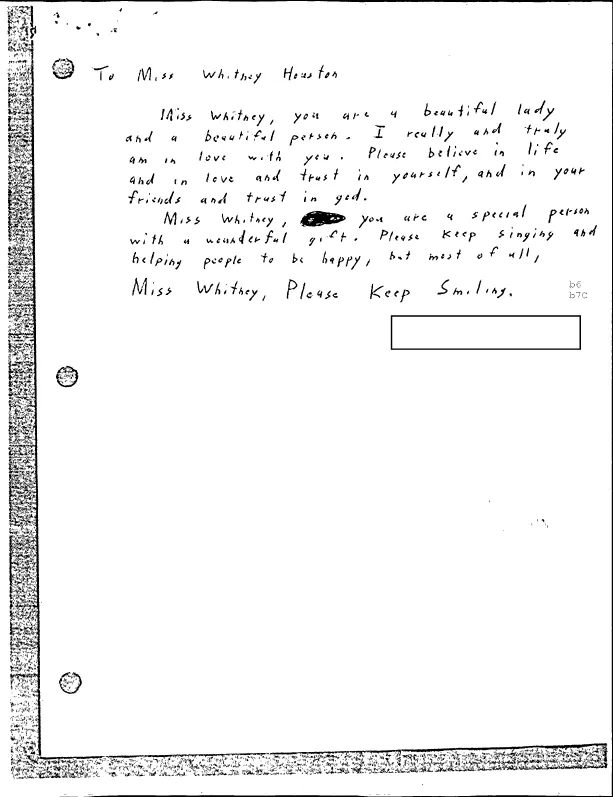 To Miss Whitney Houston
Miss Whitney, you are a beautiful lady
and a beautiful person. I really and truly
am in love with you. Please believe in life
and in love and trust in yourself, and in your
friends and trust in god.
Miss Whitney, you are a special person
with a wounderful gift. Please keep singing and
helping people to be happy, but most of all,
Miss Whitney, Please Keep Smiling.
b6
b7C